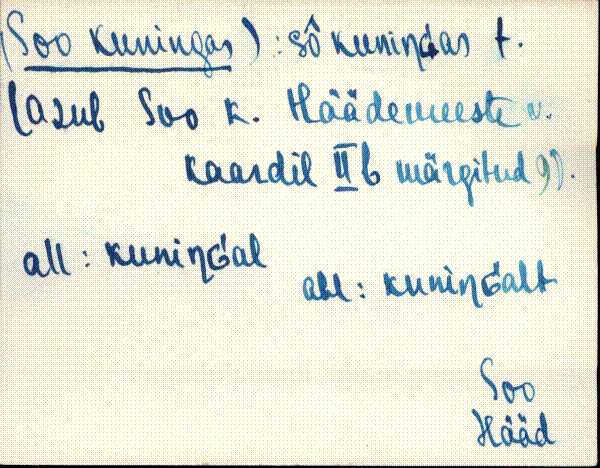 (Soo kuningas) : sô kuninɢas t.
(asub Soo k. Häädemeeste v.
kaardil IIb märgitud 9).
all : kuniŋɢal
abl : kuniŋɢalt
Soo
Hääd